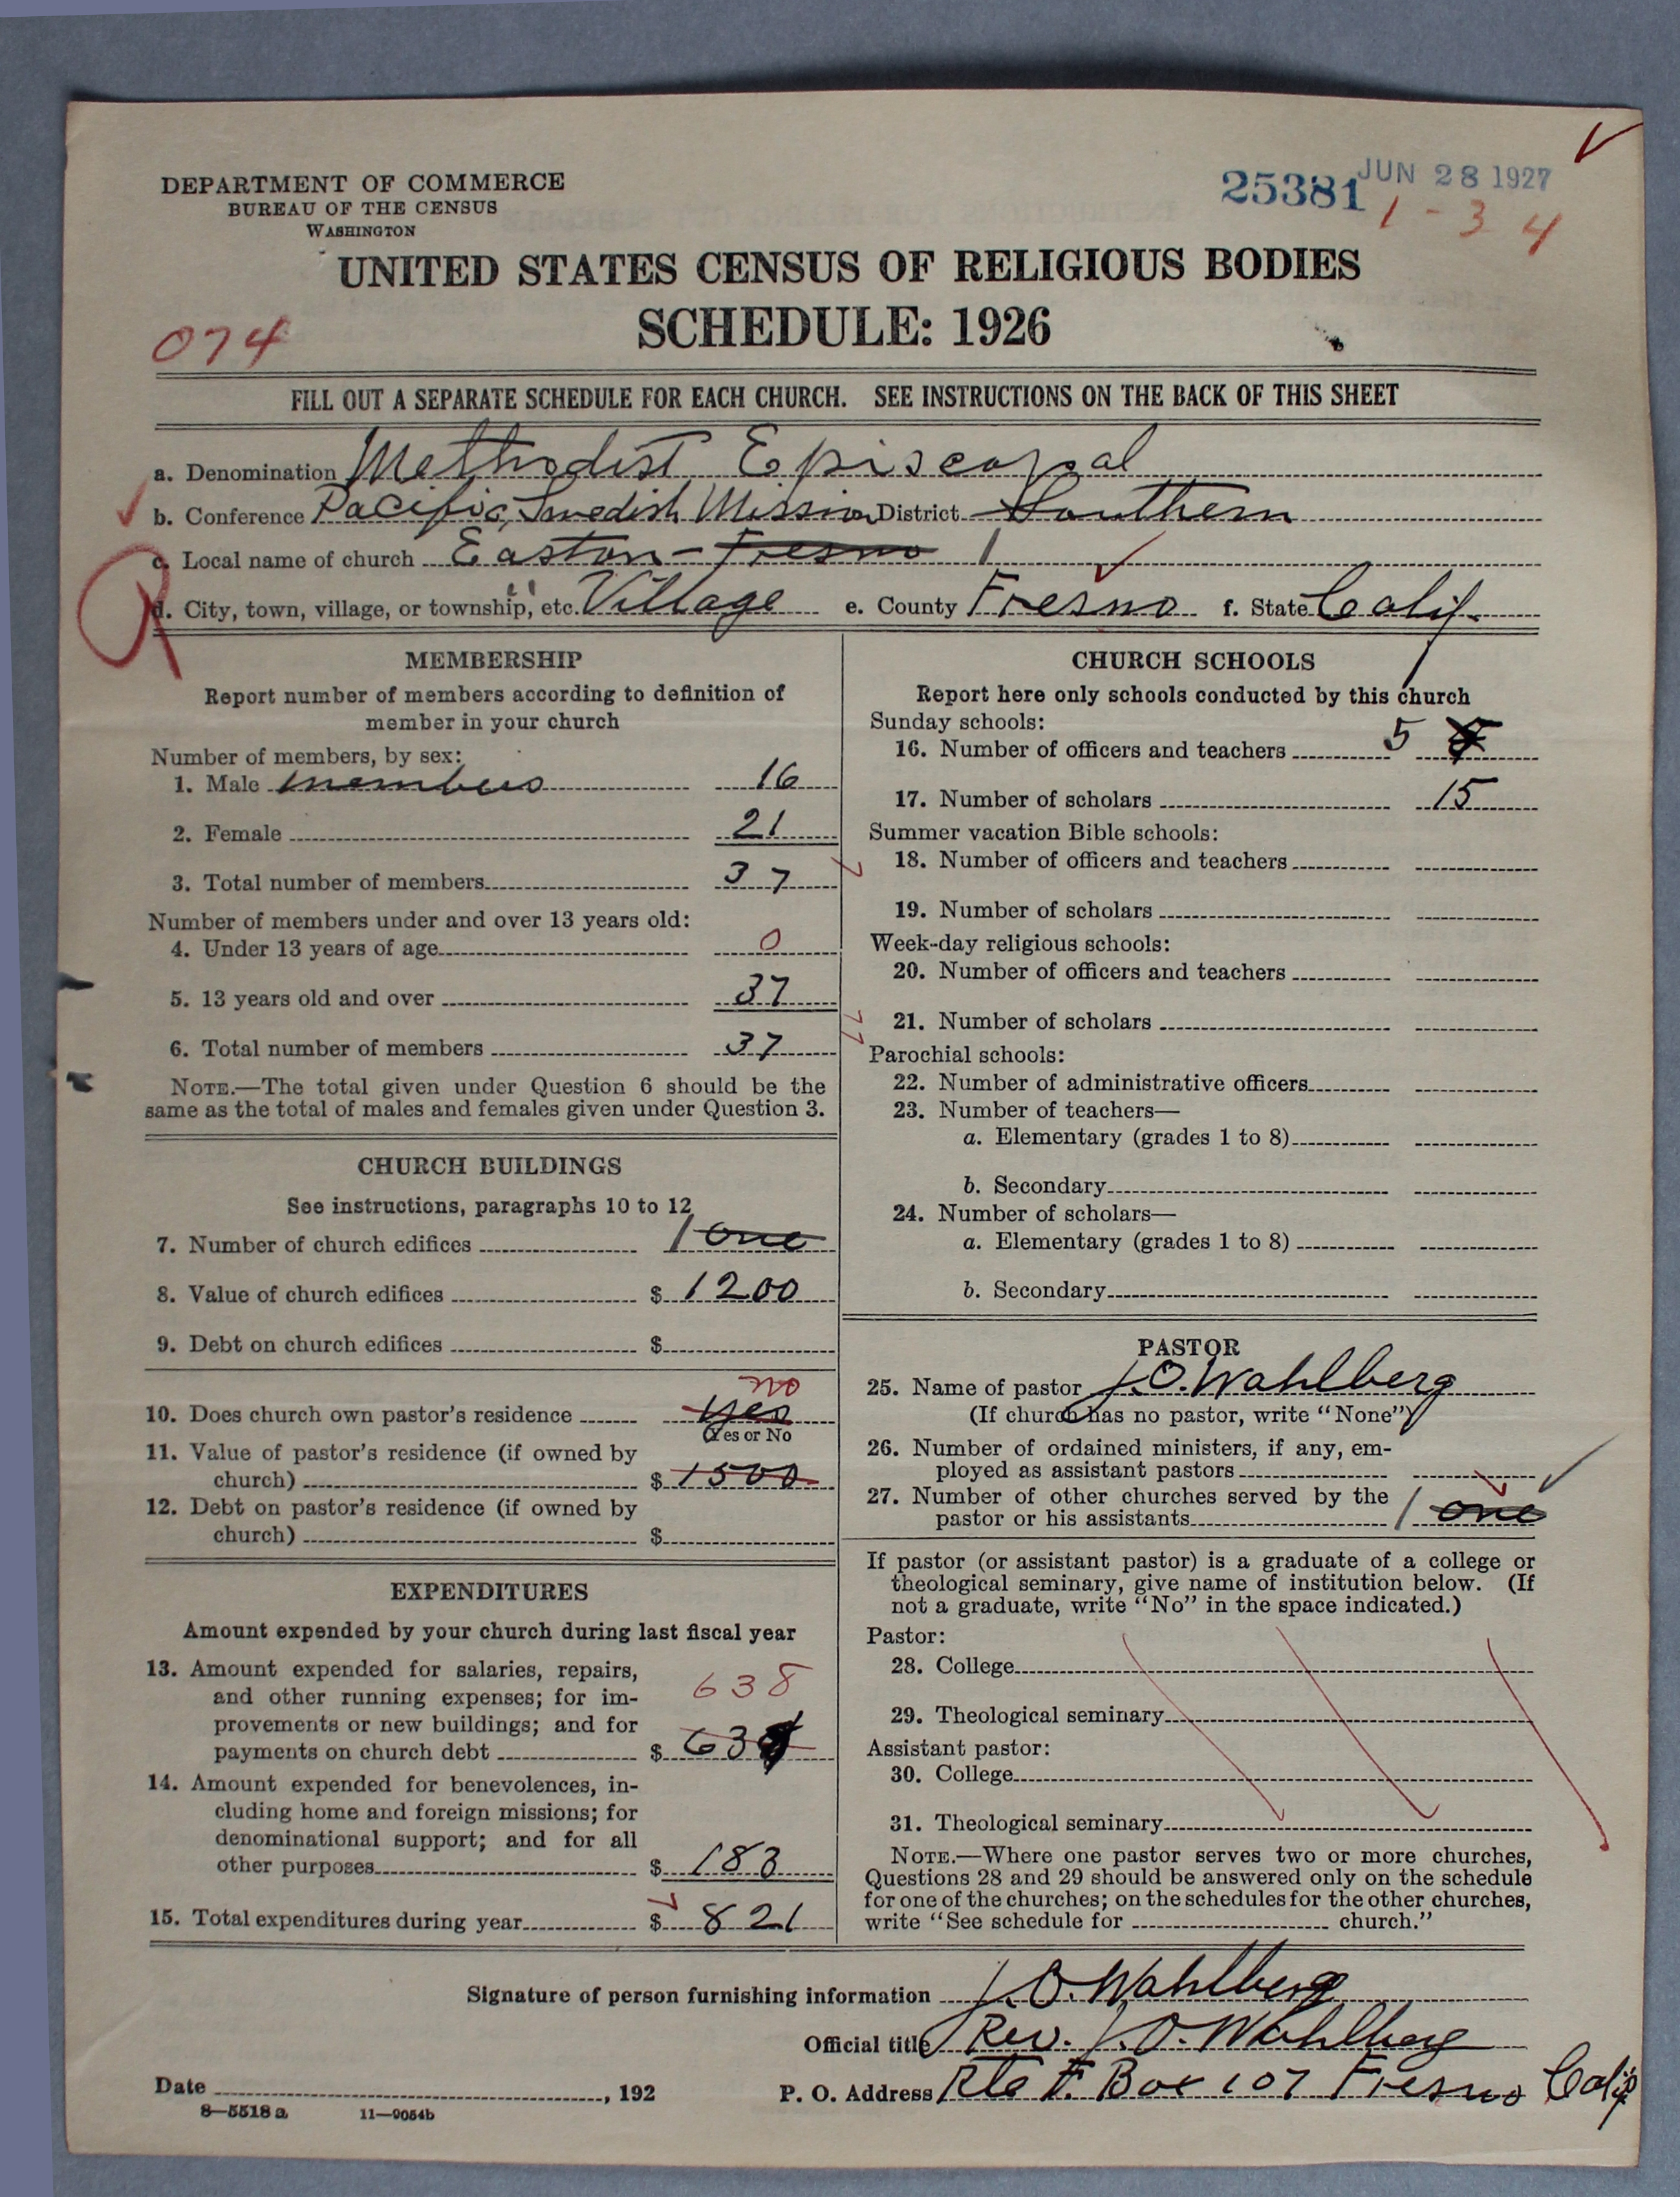 DEPARTMENT OF COMMERCE
BUREAU OF THE CENSUS
WASHINGTON
25381 JUN 28 1927
1-34
UNITED STATES CENSUS OF RELIGIOUS BODIES
SCHEDULE: 1926
074
FILL OUT A SEPARATE SCHEDULE FOR EACH CHURCH. SEE INSTRUCTIONS ON THE BACK OF THIS SHEET
a. Denomination Methodist Episcopal
b. Conference Pacific, Swedish Mission District Southern
c. Local name of church Easton - Fresno 1
d. City, town, village, or township, etc. Village e. County Fresno f. State Calif.
MEMBERSHIP
Report number of members according to definition of
member in your church
Number of members, by sex:
1. Male members 16
2. Female 21
3. Total number of members 37
Number of members under and over 13 years old:
4. Under 13 years of age 0
5. 13 years old and over 37
6. Total number of members 37
NOTE.—The total given under Question 6 should be the
same as the total of males and females given under Question 3.
CHURCH BUILDINGS
See instructions, paragraphs 10 to 12
7. Number of church edifices 1 one
8. Value of church edifices $ 1200
9. Debt on church edifices $
no
10. Does church own pastor's residence yes
(Yes or No
11. Value of pastor's residence (if owned by
church) $ 1500
12. Debt on pastor's residence (if owned by
church) $
EXPENDITURES
Amount expended by your church during last fiscal year
13. Amount expended for salaries, repairs,
and other running expenses; for im-
provements or new buildings; and for
payments on church debt $ 638
14. Amount expended for benevolences, in-
cluding home and foreign missions; for
denominational support; and for all
other purposes $ 183
15. Total expenditures during year $ 821
CHURCH SCHOOLS
Report here only schools conducted by this church
Sunday schools:
16. Number of officers and teachers 5
17. Number of scholars 15
Summer vacation Bible schools:
18. Number of officers and teachers
19. Number of scholars
Week-day religious schools:
20. Number of officers and teachers
21. Number of scholars
Parochial schools:
22. Number of administrative officers
23. Number of teachers—
a. Elementary (grades 1 to 8)
b. Secondary
24. Number of scholars—
a. Elementary (grades 1 to 8)
b. Secondary
PASTOR
25. Name of pastor J. O. Wahlberg
(If church has no pastor, write "None")
26. Number of ordained ministers, if any, em-
ployed as assistant pastors
27. Number of other churches served by the
pastor or his assistants 1 one
If pastor (or assistant pastor) is a graduate of a college or
theological seminary, give name of institution below. (If
not a graduate, write "No" in the space indicated.)
Pastor:
28. College
29. Theological seminary
Assistant pastor:
30. College
31. Theological seminary
NOTE.—Where one pastor serves two or more churches,
Questions 28 and 29 should be answered only on the schedule
for one of the churches; on the schedules for the other churches,
write "See schedule for church."
Signature of person furnishing information J. O. Wahlberg
Official title Rev. J. O. Wahlberg
Date , 192 P. O. Address Rte F. Box 107 Fresno Calif
8—5518 a 11—9054b